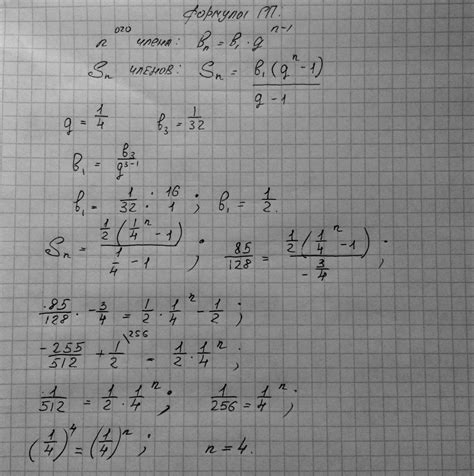 Формулы ГП.
n ого члена: b_n = b_1 · q^(n-1)
S_n членов: S_n = b_1(q^n - 1) / (q - 1)
q = 1/4    b_3 = 1/32
b_1 = b_3 / q^(3-1)
b_1 = 1/32 · 16/1 ; b_1 = 1/2.
S_n = 1/2 (1/4^n - 1) / (1/4 - 1) ; 85/128 = 1/2 (1/4^n - 1) / (- 3/4) ;
85/128 · - 3/4 = 1/2 · 1/4^n - 1/2 ;
- 255/512 + 1/2 \256 = 1/2 · 1/4^n ;
1/512 = 1/2 · 1/4^n ; 1/256 = 1/4^n ;
(1/4)^4 = (1/4)^n ; n = 4.